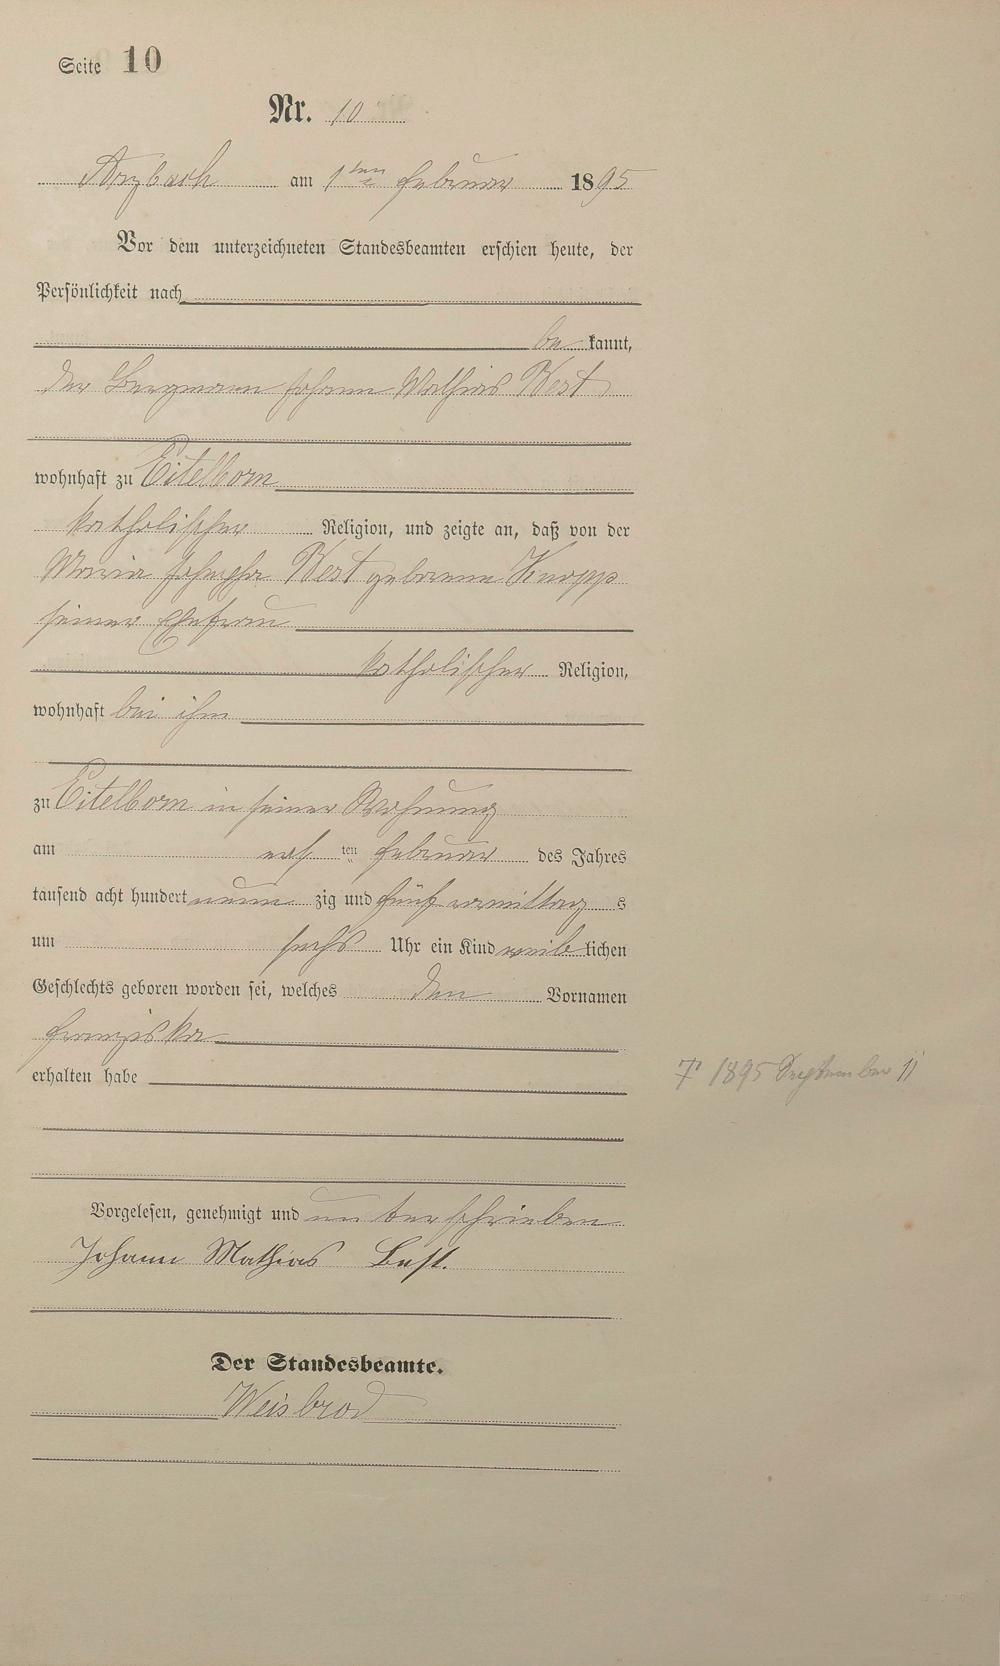 Seite 10
Nr. 10
Arzbach am 1ten Februar 1895
Vor dem unterzeichneten Standesbeamten erschien heute, der
Persönlichkeit nach
be kannt,
der Bergmann Johann Mathias Best
wohnhaft zu Eitelborn
katholischer Religion, und zeigte an, daß von der
Maria Josepha Best geborene Knopp
seiner Ehefrau
katholischer Religion,
wohnhaft bei ihm
zu Eitelborn in seiner Wohnung
am ers ten Februar des Jahres
tausend acht hundert neun zig und fünf vormittag s
um sechs Uhr ein Kind weib lichen
Geschlechts geboren worden sei, welches den Vornamen
Franziska
erhalten habe
† 1895 September 11
Vorgelesen, genehmigt und unterschrieben
Johann Mathias Best.
Der Standesbeamte.
Weisbrod